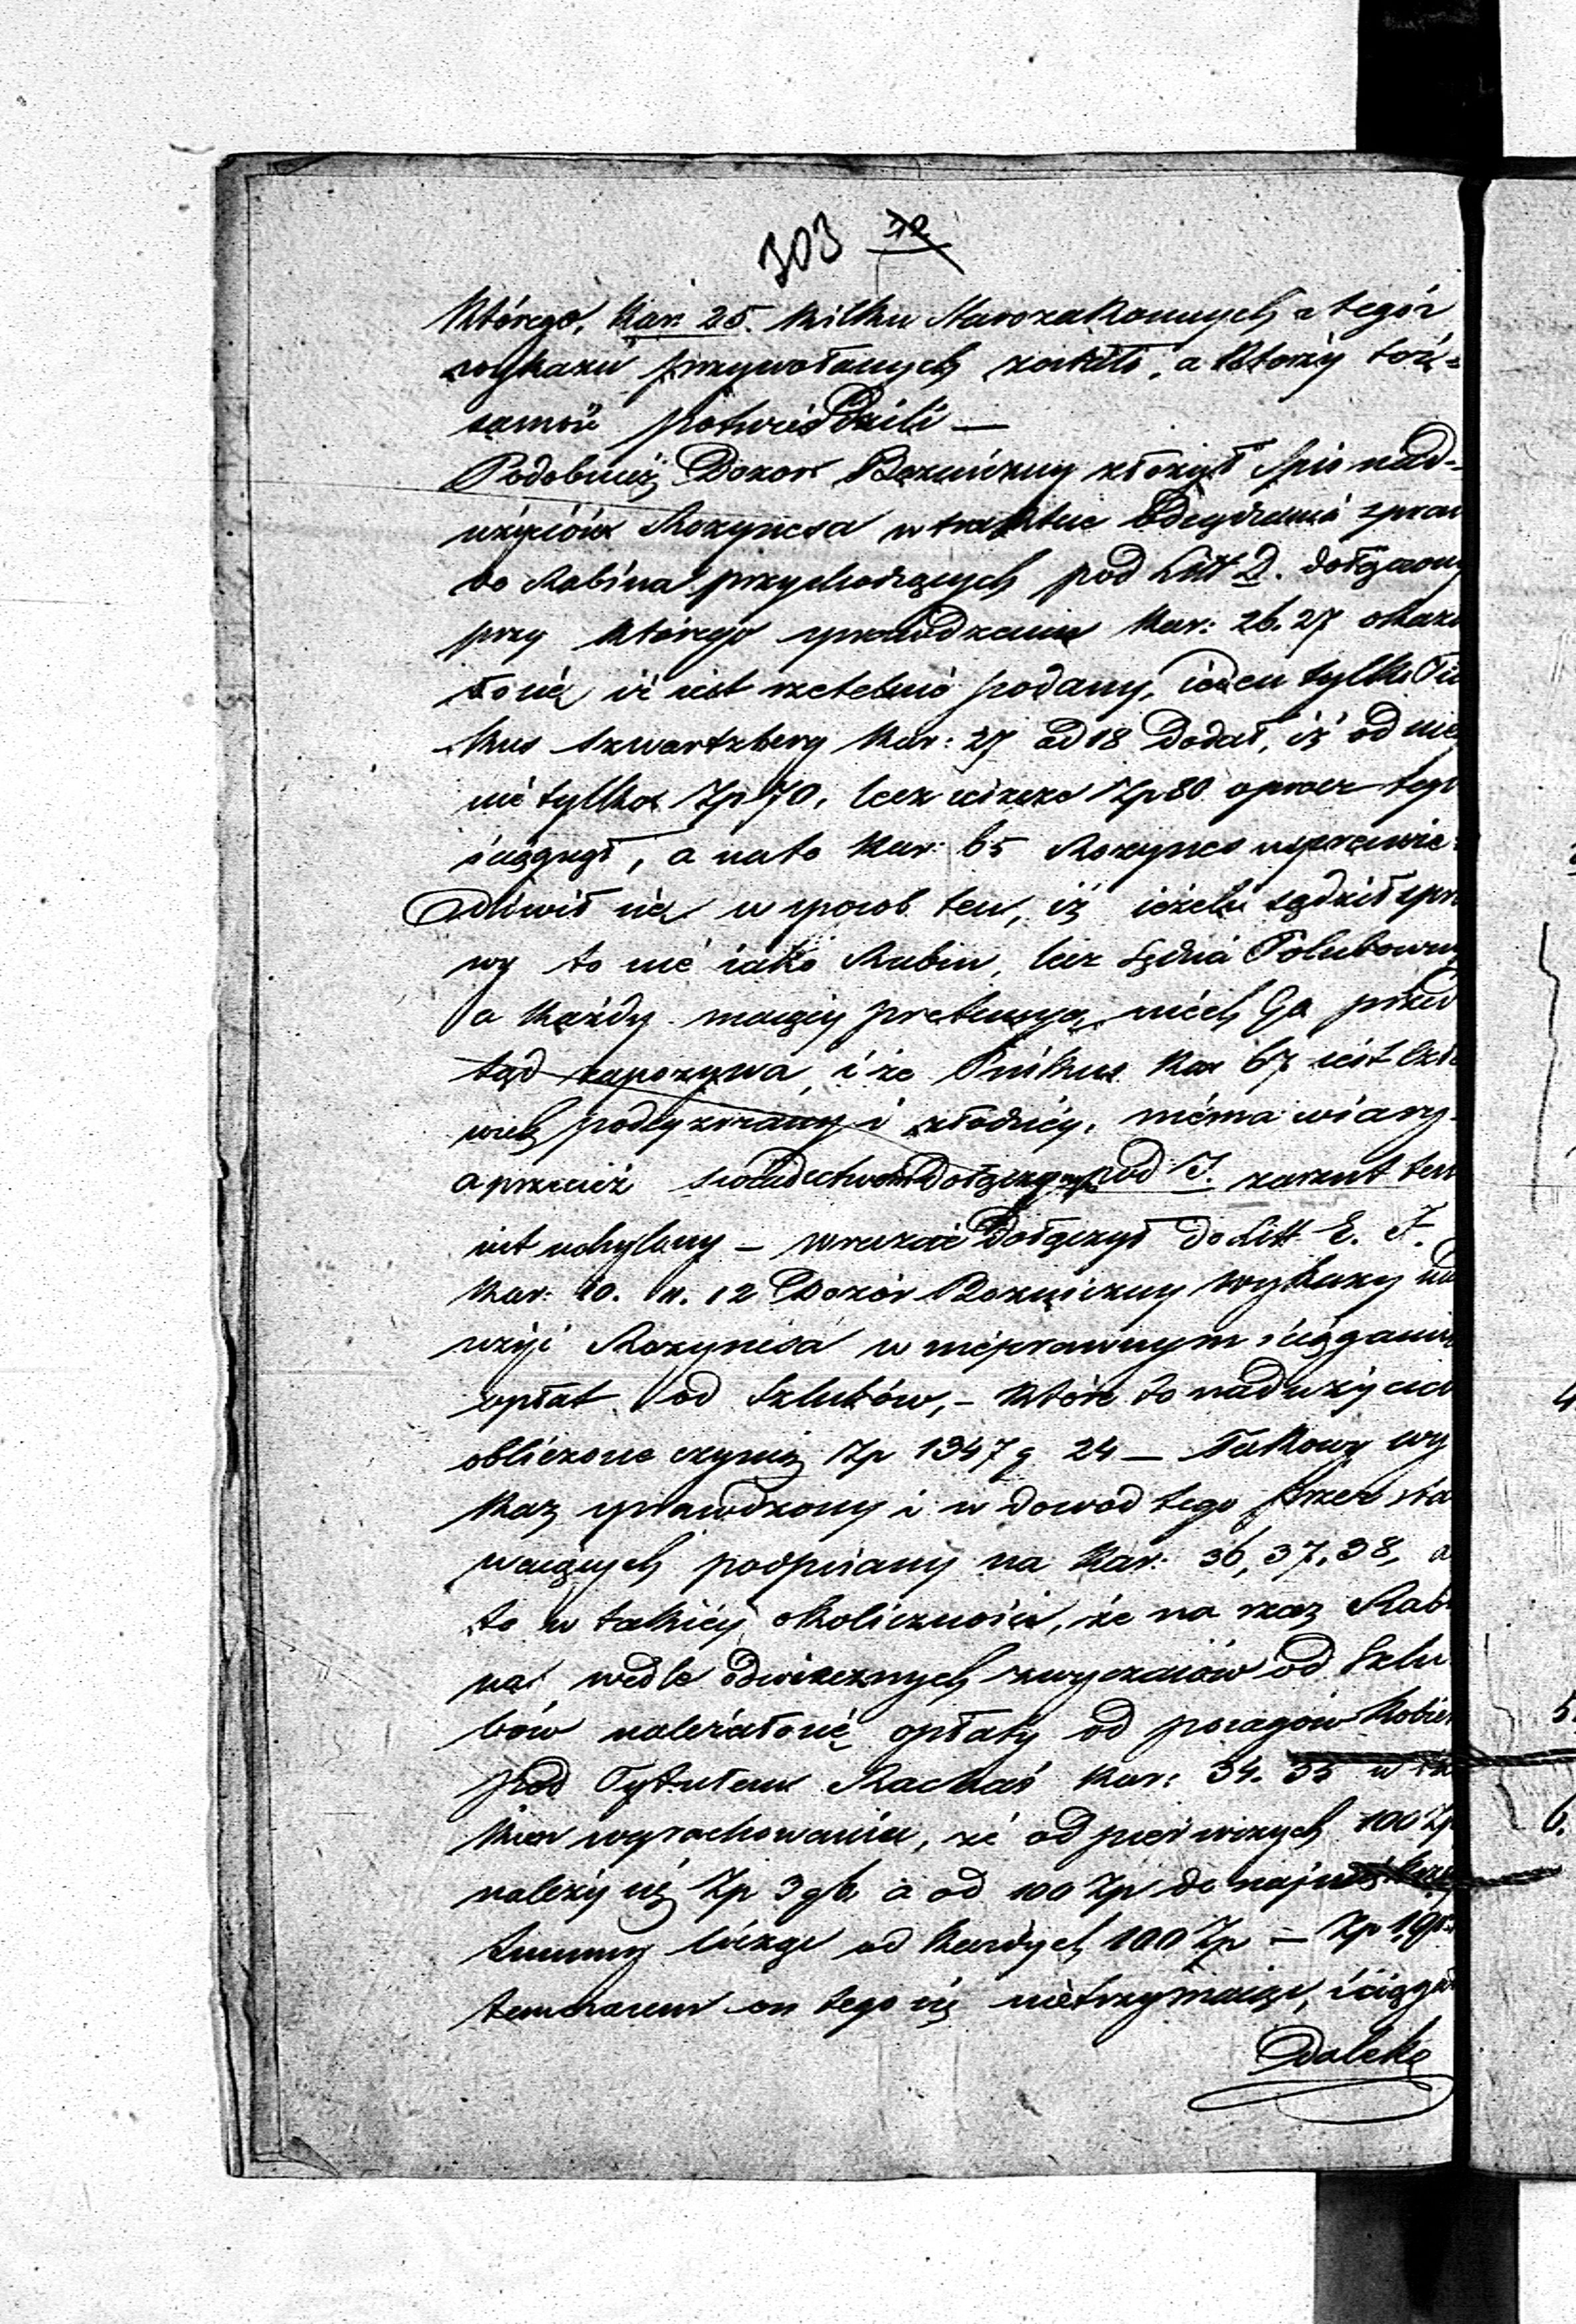 303
którego, Kar. 25. kilku Starozakonnych z tegoż
wykazu przywołanych zostało, a którzy toż
samoż potwierdzili —
Podobnież Dozor Bożniczny złożył Spis nad-
użyciów Rozynesa w trakcie
do Rabina przychodzących pod Litt D. dołączony
przy którego sprawdzeniu Kar: 26. 27 okaza
ło się iż iest rzetelnie podany, ieden tylko
kus Szwartzberg Kar: 27 ad 18 Dodał, iż od nie
nie tylko Zp 70, lecz ieszcze Zp 80 oprocz tego
ściągnął, a na to Kar: 65 Rozynes usprawie-
dliwił się w sposob ten, iż ieżeli sądził spra
wy to nie iako Rabin, lecz Sędzia Polubowny
a każdy maiący pretensyą niech Go przed
Sąd zapozywa, i że Pinkus Kar 67 iest Czło
wiek podeyzrany i złodziey, niema wiary
a przecież świadectwem Dołączonym pod J. zarzut ten
iest uchylony — wreszcie Dołączył do Litt E. F.
Kar: 10. 11. 12 Dozór Bożniczny wykazy nad
użyć Rozynesa w nieprawnym ściąganiu
opłat od Szlubów, — które to nadużycia
obliczone czynią Zp 1347 g 24 — Takowy wy
kaz sprawdzony i w dowod tego przez sta
waiących podpisany na Kar: 36, 37, 38, a
to w takiey okoliczności, że na rzecz Rabi
na wedle odwiecznych zwyczaiów od Szlu
bów należało się opłaty od posagów kobiet
pod Tytułem Rachaś Kar: 34. 35 w ta
kiem wyrachowaniu, że od pierwszych 100 Zp
należy się Zp 3 g 6 a od 100 Zp do największey
Summy licząc od każdych 100 Zp — Zp 1 g
tem czasem on tego się nietrzymaiąc, ściągał
Daleko